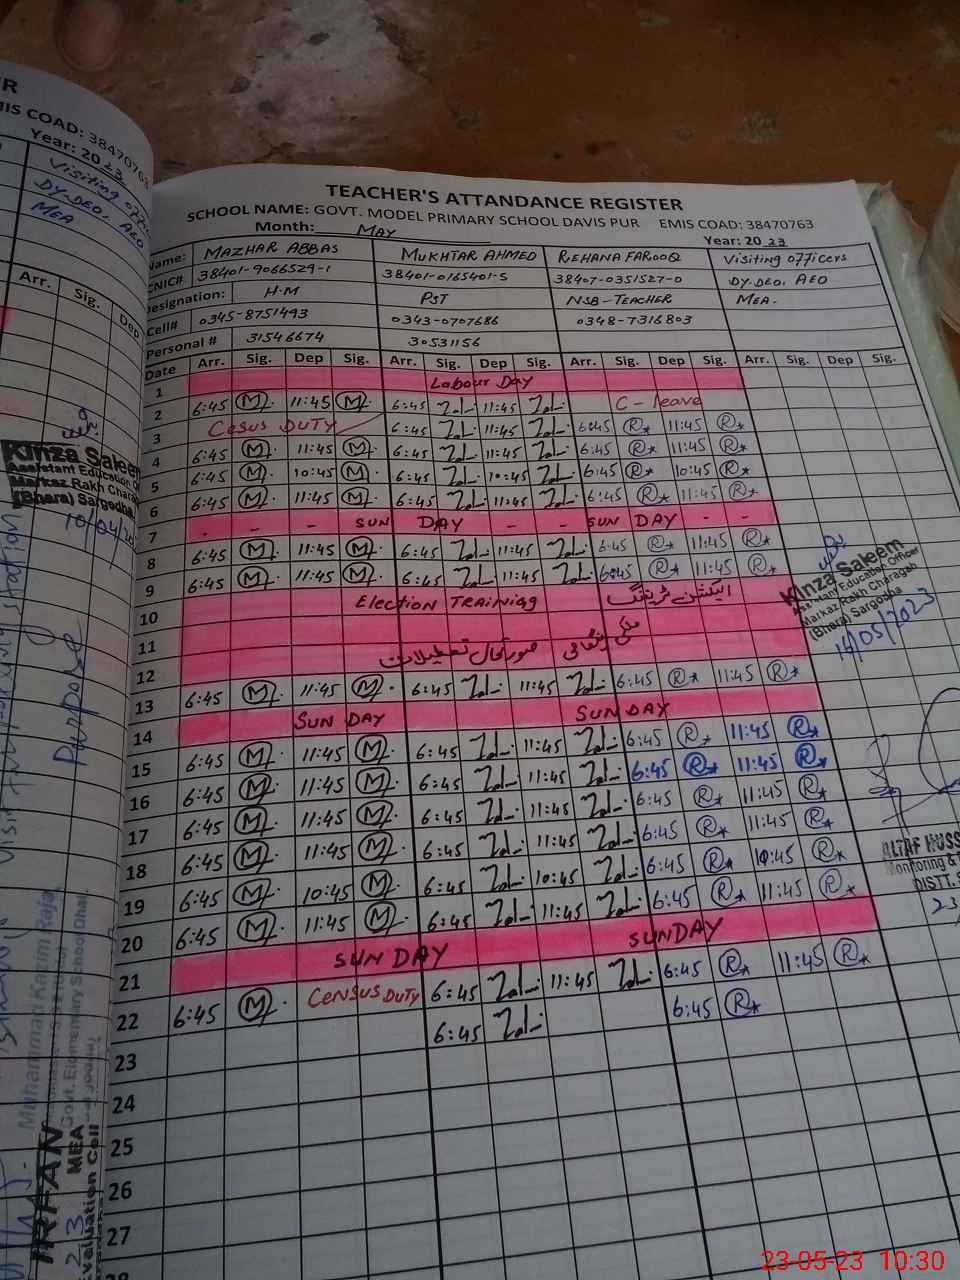 TEACHER'S ATTANDANCE REGISTER
SCHOOL NAME: GOVT. MODEL PRIMARY SCHOOL DAVIS PUR EMIS COAD: 38470763
Month: MAY Year: 2023
Name: MAZHAR ABBAS MUKHTAR AHMED REHANA FAROOQ Visiting officers
CNIC# 38401-9066529-1 38401-0165401-5 38407-0351527-0 DY-DEO, AEO
Designation: H-M PST NSB-TEACHER MEA.
Cell# 0345-8751493 0343-0707686 0348-7316803
Personal # 31546674 30531156
Date Arr. Sig. Dep Sig. Arr. Sig. Dep Sig. Arr. Sig. Dep Sig. Arr. Sig. Dep Sig.
1 Labour Day
2 6:45 M 11:45 M 6:45 11:45 C-leave
3 CeSUS DUTY 6:45 11:45 6:45 R 11:45 R
4 6:45 M 11:45 M 6:45 11:45 6:45 R 11:45 R
5 6:45 M 10:45 M 6:45 10:45 6:45 R 10:45 R
6 6:45 M 11:45 M 6:45 11:45 6:45 R 11:45 R
7 - - SUN DAY - - SUN DAY - -
8 6:45 M 11:45 M 6:45 11:45 6:45 R 11:45 R
9 6:45 M 11:45 M 6:45 11:45 6:45 R 11:45 R
10 Election TRAINing الیکشن ٹریننگ
11
12 صورتحال تعطیلات
13 6:45 M 11:45 M 6:45 11:45 6:45 R 11:45 R
14 SUN DAY SUNDAY
15 6:45 M 11:45 M 6:45 11:45 6:45 R 11:45 R
16 6:45 M 11:45 M 6:45 11:45 6:45 R 11:45 R
17 6:45 M 11:45 M 6:45 11:45 6:45 R 11:45 R
18 6:45 M 11:45 M 6:45 11:45 6:45 R 11:45 R
19 6:45 M 10:45 M 6:45 10:45 6:45 R 10:45 R
20 6:45 M 11:45 M 6:45 11:45 6:45 R 11:45 R
21 SUNDAY SUNDAY
22 6:45 M CENSUS DUTY 6:45 11:45 6:45 R 11:45 R
6:45 6:45 R
23
24
25
26
27
28
Kinza Saleem
Assistant Education Officer
Markaz Rakh Charagah
(Bhera) Sargodha
16/05/2023
ALTAF HUSS
Monitoring &
DISTT. S
23
EMIS COAD: 38470763
Year: 2023
Visiting
DY-DEO, AEO
MEA
Arr. Sig. Dep
Kinza Saleem
Assistant Education
Markaz Rakh Charag
(Bhera) Sargodha
10/04/
Purpose
Muhammad Kazim Raja
Govt. Elementary School Dhal
IRFAN
MEA
Evaluation Cell
23-05-23 10:30